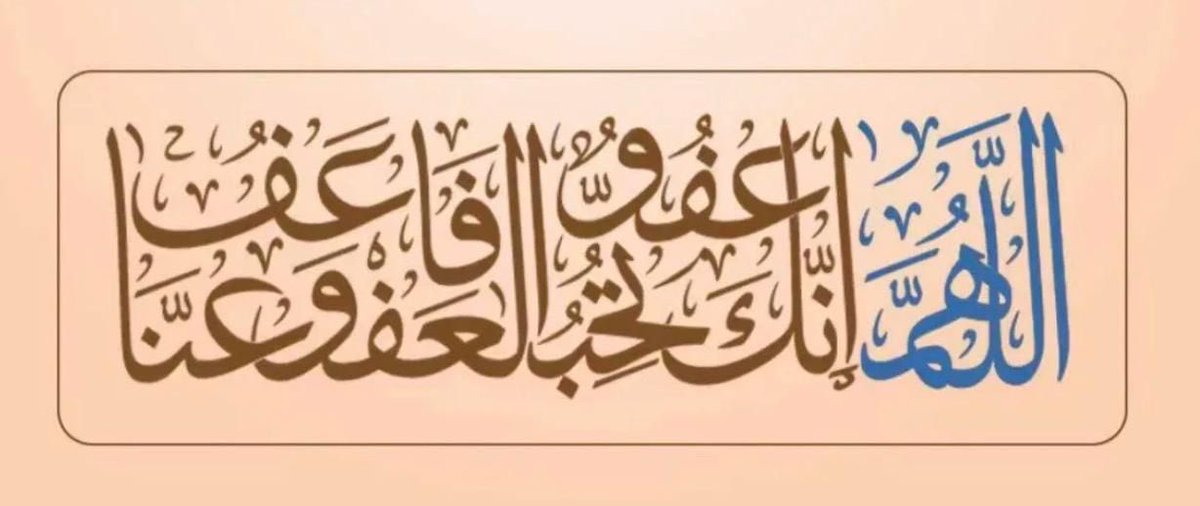 اللَّهُمَّ إِنَّكَ عَفُوٌّ تُحِبُّ الْعَفْوَ فَاعْفُ عَنَّا